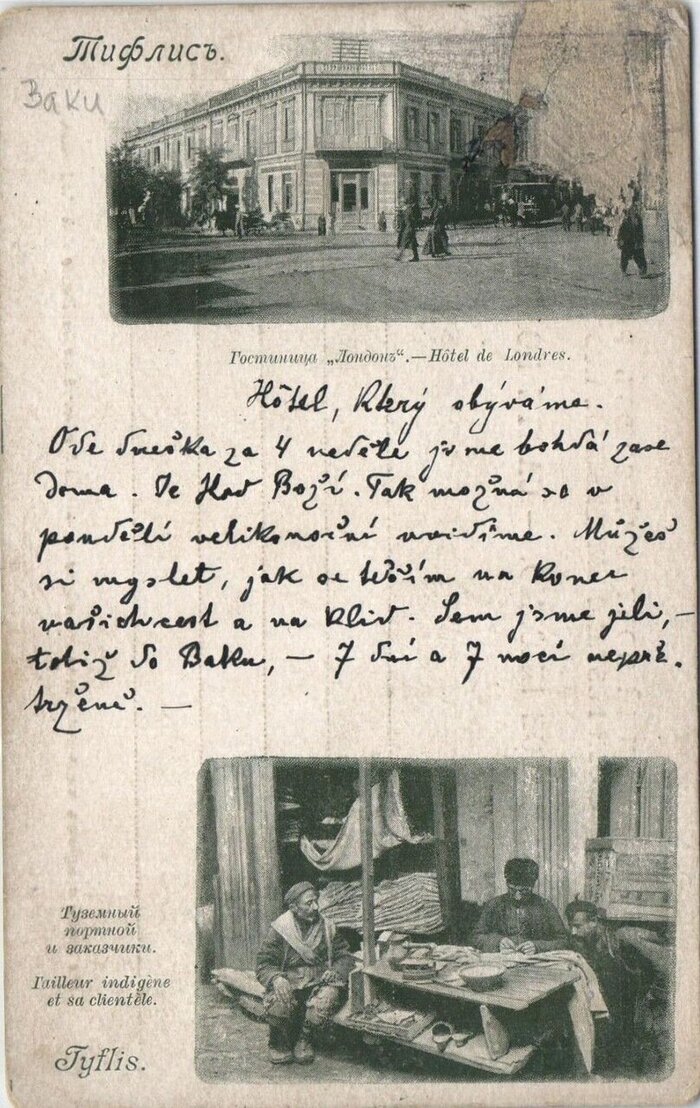 Тифлисъ.
Баки
Гостиница „Лондонъ“.—Hôtel de Londres.
Hôtel, který obýváme.
Ode dneška za 4 neděle jsme bohdá zase
doma. Je Hod Boží. Tak možná se v
pondělí velikonoční uvidíme. Můžeš
si myslet, jak se těším na konec
a na klid. Sem jsme jeli, —
totiž do Baku, — 7 dní a 7 nocí nepře-
trženě. —
Туземный
портной
и заказчики.
Tailleur indigène
et sa clientèle.
Tyflis.